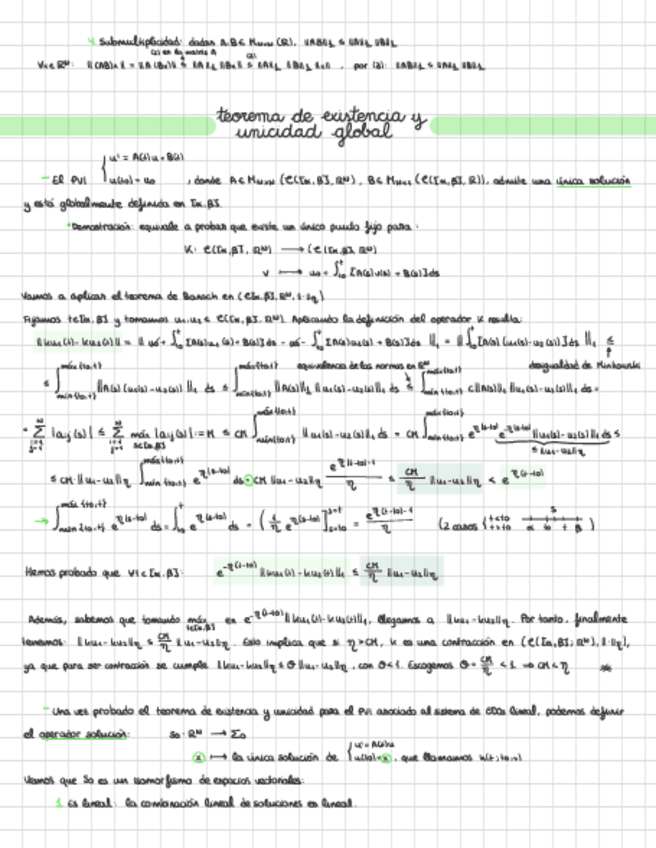 4. Submultiplicidad: dadas A, B ∈ M_{N×N}(ℝ), ‖AB‖_1 ≤ ‖A‖_1 ‖B‖_1
(2) en la matriz A (2)
∀x ∈ ℝ^N: ‖(AB)x‖ = ‖A(Bx)‖ ≤ ‖A‖_1 ‖Bx‖ ≤ ‖A‖_1 ‖B‖_1 ‖x‖, por (3): ‖AB‖_1 ≤ ‖A‖_1 ‖B‖_1
teorema de existencia y
unicidad global
- El PVI { u' = A(t)u + B(t)
u(t0) = u0 , donde A ∈ M_{N×N}(C([α,β], ℝ^N), B ∈ M_{N×1}(C([α,β], ℝ)), admite una única solución
y está globalmente definida en [α,β]
*Demostración: equivale a probar que existe un único punto fijo para:
K: C([α,β], ℝ^N) ⟶ C([α,β], ℝ^N)
v ⟼ u0 + ∫_{t0}^t [A(s)v(s) + B(s)]ds
Vamos a aplicar el teorema de Banach en (C([α,β], ℝ^N, ‖·‖_η)
Fijamos t∈[α,β] y tomamos u1, u2 ∈ C([α,β], ℝ^N). Aplicando la definición del operador K resulta:
‖Ku1(t) - Ku2(t)‖_1 = ‖u0 + ∫_{t0}^t [A(s)u1(s) + B(s)]ds - u0 - ∫_{t0}^t [A(s)u2(s) + B(s)]ds‖_1 = ‖∫_{t0}^t [A(s)(u1(s) - u2(s))]ds‖_1 ≤
equivalencia de las normas en ℝ^N desigualdad de Minkowski
≤ ∫_{mín{t0,t}}^{máx{t0,t}} ‖A(s)(u1(s) - u2(s))‖_1 ds ≤ ∫_{mín{t0,t}}^{máx{t0,t}} ‖A(s)‖_1 ‖u1(s) - u2(s)‖_1 ds ≤ ∫_{mín{t0,t}}^{máx{t0,t}} c‖A(s)‖_1 ‖u1(s) - u2(s)‖_1 ds =
= Σ |aij(s)| ≤ Σ máx_{s∈[α,β]} |aij(s)| := M ≤ CM ∫_{mín{t0,t}}^{máx{t0,t}} ‖u1(s) - u2(s)‖_1 ds = CM ∫_{mín{t0,t}}^{máx{t0,t}} e^{η|s-t0|} e^{-η|s-t0|} ‖u1(s) - u2(s)‖_1 ds ≤
≤ ‖u1 - u2‖_η
≤ CM ‖u1 - u2‖_η ∫_{mín{t0,t}}^{máx{t0,t}} e^{η|s-t0|} ds = CM ‖u1 - u2‖_η (e^{η|t-t0|} - 1)/η ≤ CM/η ‖u1 - u2‖_η · e^{η|t-t0|}
→ ∫_{mín{t0,t}}^{máx{t0,t}} e^{η|s-t0|} ds = ∫_{t0}^t e^{η(s-t0)} ds = (1/η e^{η(s-t0)}]_{s=t0}^{s=t} = (e^{η(t-t0)} - 1)/η (2 casos { t<t0
t>t0 α t0 t β )
Hemos probado que ∀t∈[α,β]: e^{-η|t-t0|} ‖Ku1(t) - Ku2(t)‖_1 ≤ CM/η ‖u1 - u2‖_η
Además, sabemos que tomando máx_{t∈[α,β]} en e^{-η|t-t0|} ‖Ku1(t) - Ku2(t)‖_1, llegamos a ‖Ku1 - Ku2‖_η. Por tanto, finalmente
tenemos: ‖Ku1 - Ku2‖_η ≤ CM/η ‖u1 - u2‖_η. Esto implica que si η > CM, K es una contracción en (C([α,β]; ℝ^N), ‖·‖_η),
ya que para ser contracción se cumple ‖Ku1 - Ku2‖_η ≤ θ ‖u1 - u2‖_η, con θ<1. Escogemos θ = CM/η < 1 ⇒ CM < η
- Una vez probado el teorema de existencia y unicidad para el PVI asociado al sistema de EDOs lineal, podemos definir
el operador solución: S0: ℝ^N ⟶ Σ0
x ⟼ la única solución de { u' = A(t)u
u(t0) = x , que llamamos u(t; t0, x)
Veamos que S0 es un isomorfismo de espacios vectoriales:
1. Es lineal: la combinación lineal de soluciones es lineal.